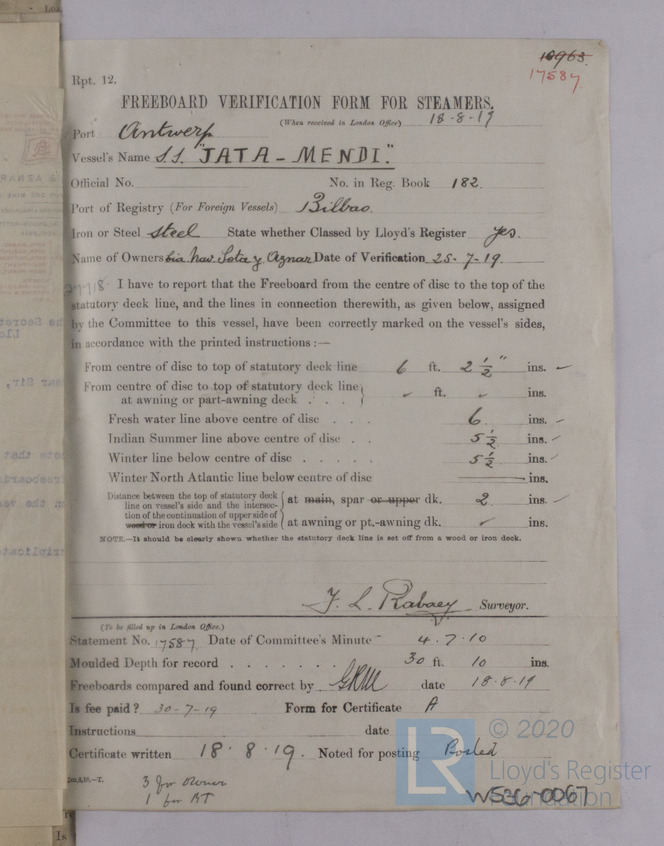 16963.
17587.
Rpt. 12.
FREEBOARD VERIFICATION FORM FOR STEAMERS.
(When received in London Office) 18-8-19
Port Antwerp
Vessel's Name S.S. "JATA-MENDI."
Official No. No. in Reg. Book 182.
Port of Registry (For Foreign Vessels) Bilbao.
Iron or Steel steel State whether Classed by Lloyd's Register yes.
Name of Owners Cia Nav. Sota y Aznar Date of Verification 25-7-19.
I have to report that the Freeboard from the centre of disc to the top of the
statutory deck line, and the lines in connection therewith, as given below, assigned
by the Committee to this vessel, have been correctly marked on the vessel's sides,
in accordance with the printed instructions :—
From centre of disc to top of statutory deck line 6 ft. 2 ½" ins.
From centre of disc to top of statutory deck line
at awning or part-awning deck . . . ft. ins.
Fresh water line above centre of disc . . . 6. ins.
Indian Summer line above centre of disc . . 5 ½ ins.
Winter line below centre of disc . . . . . 5 ½ ins.
Winter North Atlantic line below centre of disc ins.
Distance between the top of statutory deck
line on vessel's side and the intersec-
tion of the continuation of upper side of
wood or iron deck with the vessel's side
at main, spar or upper dk. 2 ins.
at awning or pt.-awning dk. ins.
NOTE.—It should be clearly shown whether the statutory deck line is set off from a wood or iron deck.
F. L. Rabaey Surveyor.
(To be filled up in London Office.)
Statement No. 17587 Date of Committee's Minute 4.7.10
Moulded Depth for record . . . . . . . 30 ft. 10 ins.
Freeboards compared and found correct by GRM date 18.8.19
Is fee paid? 30-7-19 Form for Certificate A
Instructions date
Certificate written 18.8.19. Noted for posting Posted
3 for owner
1 for BT
© 2020
LR
Lloyd's Register
Foundation
W536-0067